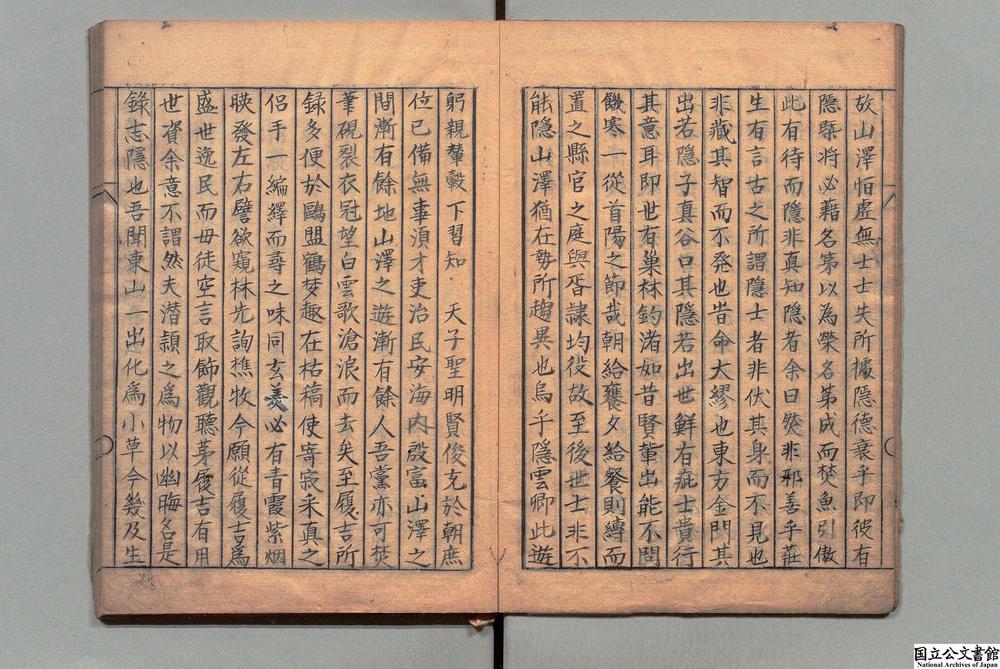 故山澤恒虛無士士失所據隱德衰乎即彼有
隱槩將必藉名第以為榮名第成而焚魚引傲
此有待而隱非真知隱者余曰唉非邪善乎莊
生有言古之所謂隱士者非伏其身而不見也
非藏其智而不発也峕命大繆也東方金門其
出若隱子真谷口其隱若出世鮮有疵士貴行
其意耳即世有巢林釣渚如昔賢軰出能不問
饑寒一從首陽之節哉朝給饔夕給餐則縛而
置之縣官之庭與胥隸均役故至後世士非不
能隱山澤猶在勢所趨異也烏乎隱雲卿此遊
躬親輦轂下習知 天子聖明賢俊充於朝庶
位已備無事湏才吏治民安海内殷富山澤之
間漸有餘地山澤之遊漸有餘人吾黨亦可焚
筆硯裂衣冠望白雲歌滄浪而去矣至履吉所
録多便於鷗盟鶴梦趣在枯稿使寄寂采真之
侶于一編繹而尋之味同玄羙必有青霞紫烟
暎發左右譬欲窺林先詢樵牧今願從履吉為
盛世逸民而毋徒空言取飾觀聽茅履吉有用
世資余意不謂然夫潜頴之為物以幽晦名是
錄志隱也吾聞東山一出化為小草今幾及生
国立公文書館
National Archives of Japan